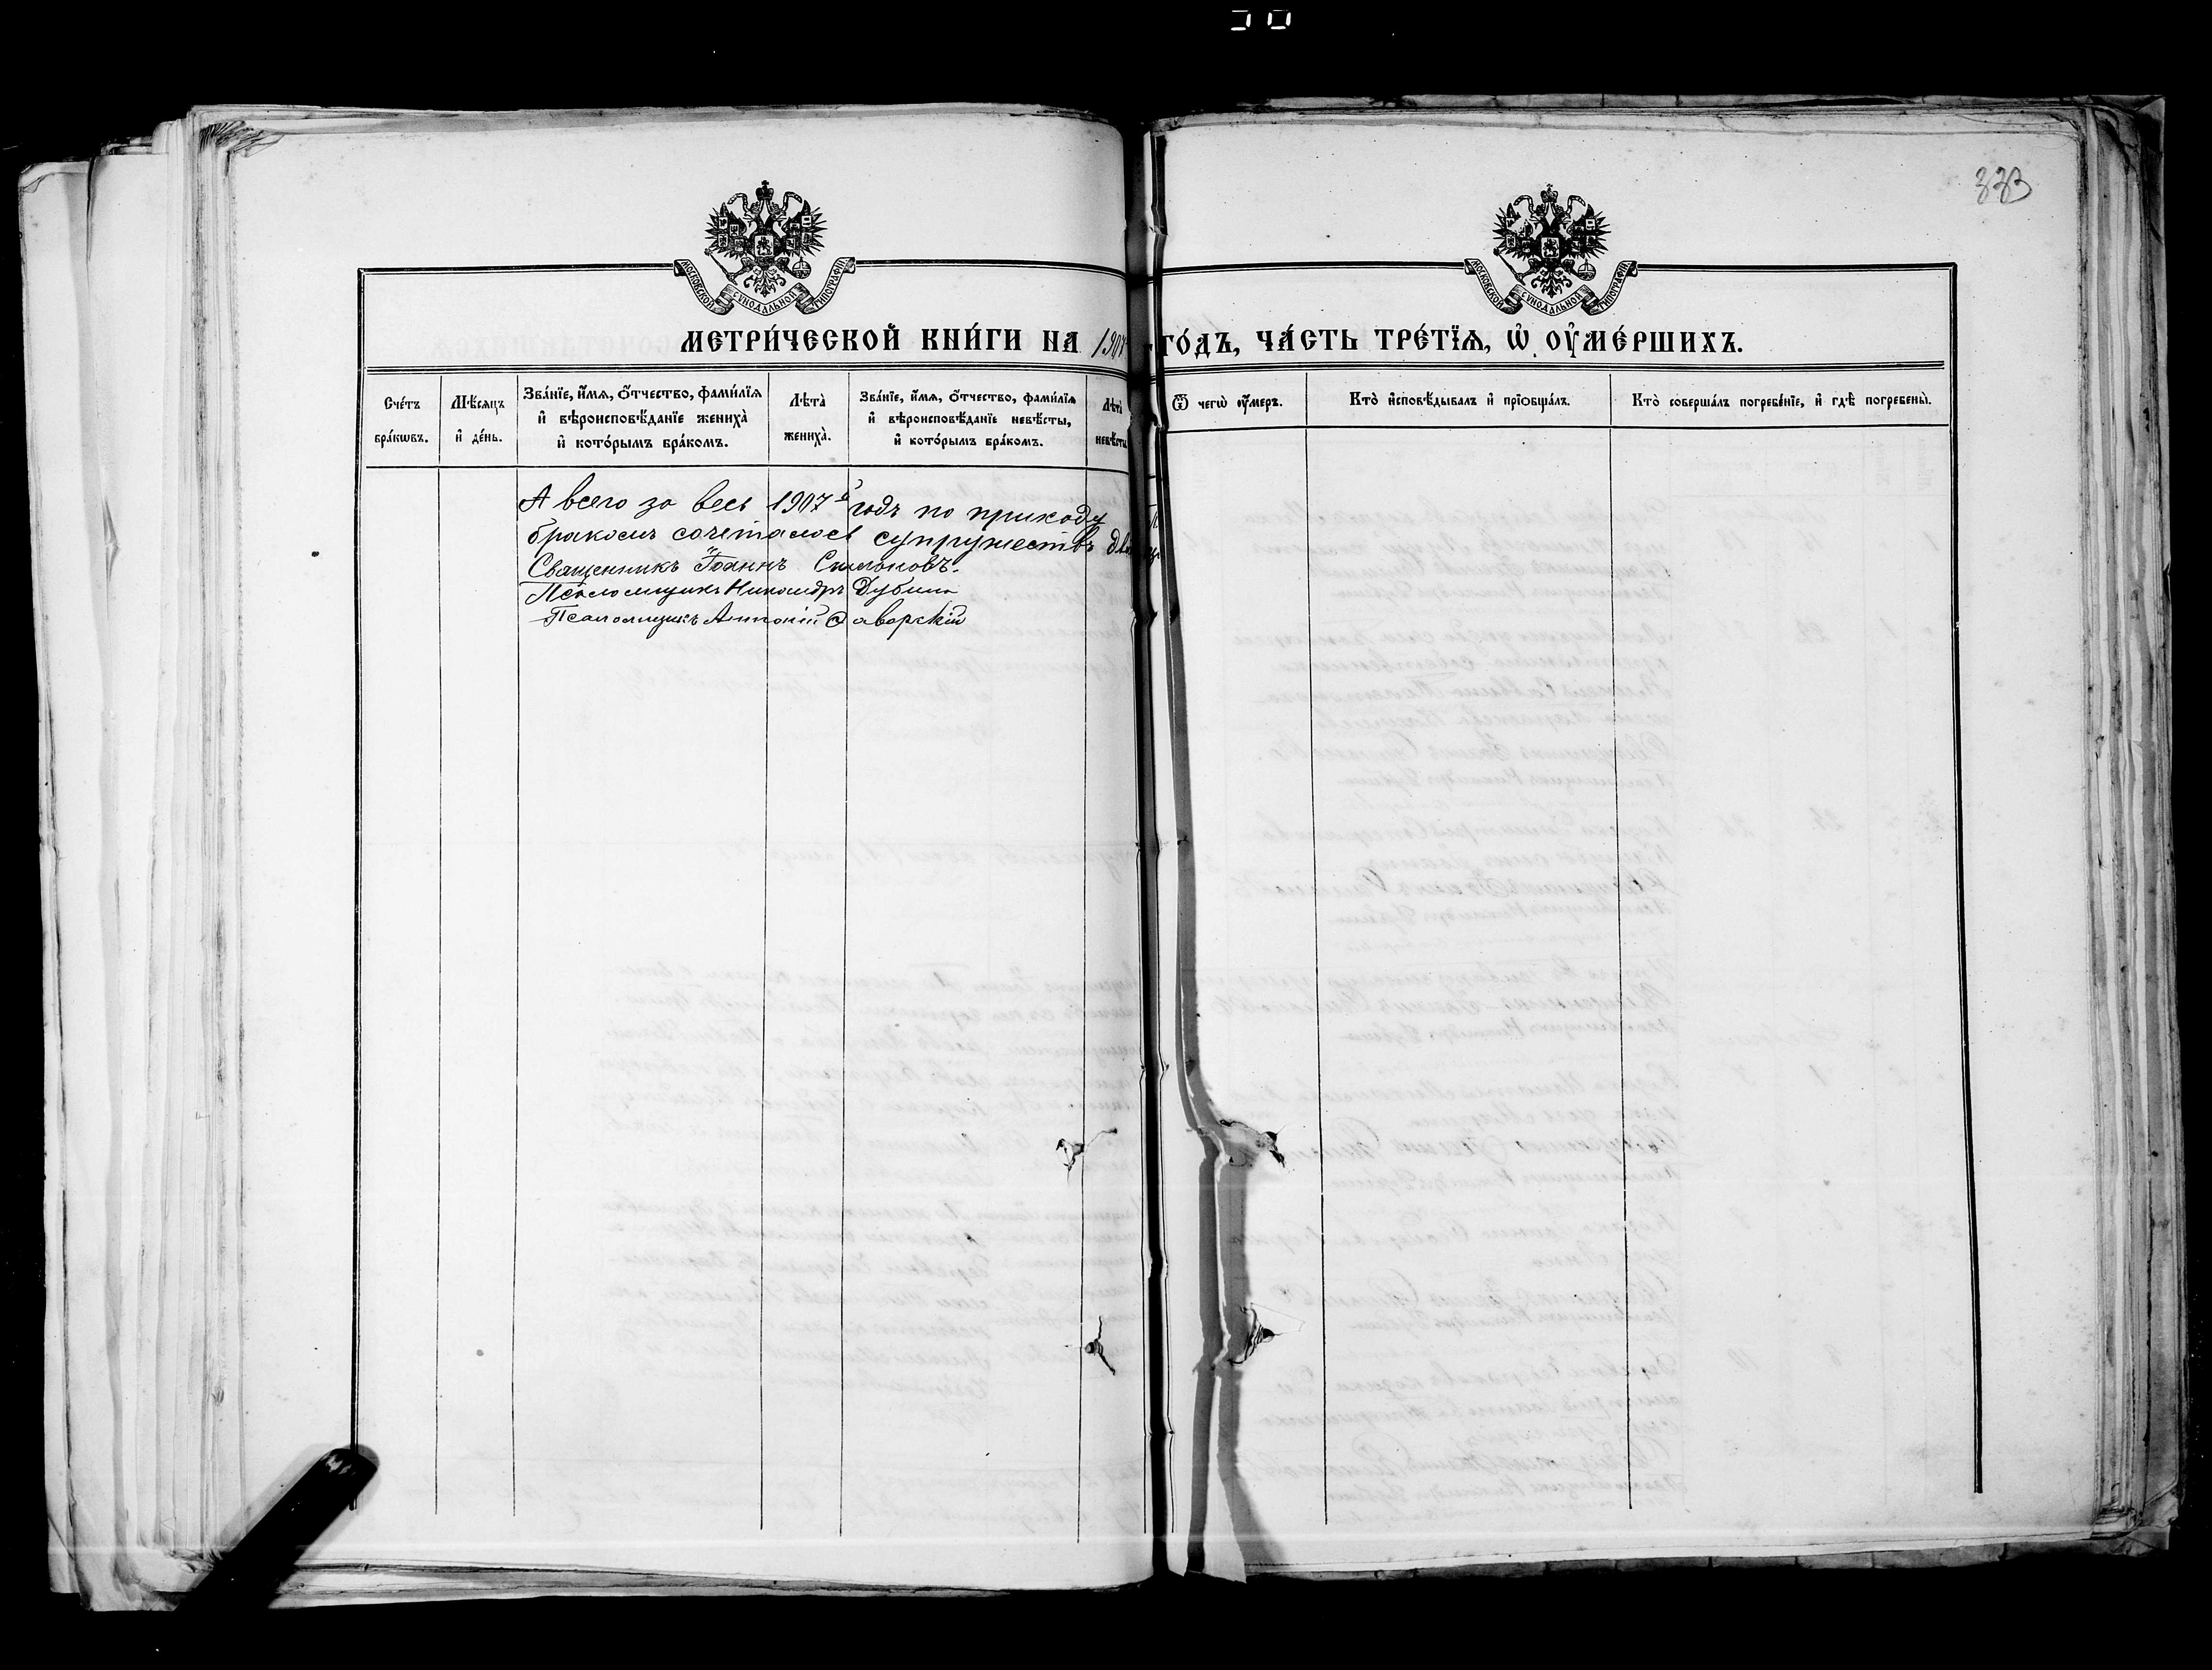 333
МОСКОВСКОЙ СѴНОДАЛЬНОЙ ТИПОГРАФІИ
МОСКОВСКОЙ СѴНОДАЛЬНОЙ ТИПОГРАФІИ
МЕТРИ́ЧЕСКОЙ КНИ́ГИ НА 1907
ГО́ДЪ, ЧА́СТЬ ТРЕ́ТЇѦ, Ѡ҆ ОУ҆МЕ́РШИХЪ.
Сче́тъ
бра́кѡвъ.
Мѣ́сѧцъ
и҆ де́нь.
Зва́нїе, и҆́мѧ, ѻ҆́тчество, фами́лїѧ
и҆ вѣроисповѣ́данїе жениха̀
и҆ кото́рымъ бра́комъ.
Лѣта̀
жениха̀.
Зва́нїе, и҆́мѧ, ѻ҆́тчество, фами́лїѧ
и҆ вѣроисповѣ́данїе невѣ́сты,
и҆ кото́рымъ бра́комъ.
Лѣта̀
невѣ́сты
Ѿ чегѡ̀ оу҆́меръ.
Кто̀ и҆сповѣ́дывалъ и҆ прїѡбща́лъ.
Кто̀ соверша́лъ погребе́нїе, и҆ гдѣ̀ погребены̀.
А всего за весь 1907й годъ по приходу
бракомъ сочеталось супружествъ
Священникъ Іоаннъ Симоновъ.
Псаломщикъ Никандръ Дубина
Псаломщикъ Антоній